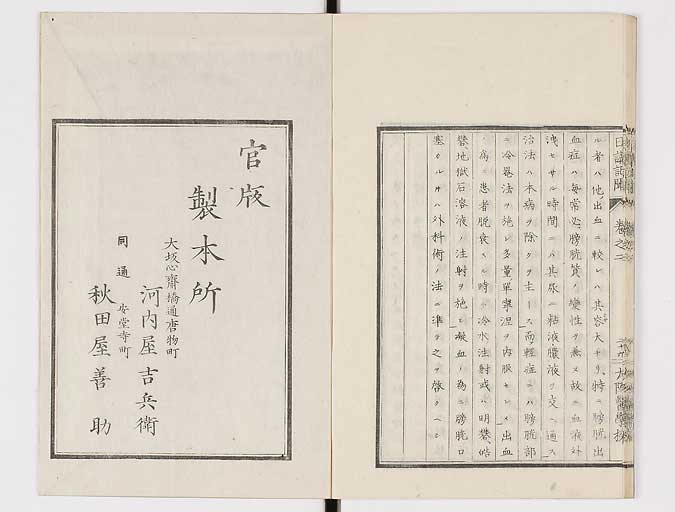 ル者ハ他出血ニ較レハ其容大ナリ特ニ膀胱出
血症ハ毎常必膀胱質ノ變性ヲ兼メ故ニ血液外
洩セサル時間ニハ其尿ニ粘液膿液ヲ交ヘ通ス
治法ハ本病ヲ除クヲ主トス而輕症ニハ膀胱部
ニ冷罨法ヲ施シ多量單寧涅ヲ内服セシメ出血
病ニ患者脱衰スル時ハ冷水注射或ハ明礬皓
礬地獄石溶液ノ注射ヲ施シ凝血ノ為ニ膀胱口
塞カルルハ外科術ノ法ニ準テ之ヲ啓クヘシ
日講記聞
卷之二
官版
製本所
大坂心齋橋通唐物町
河内屋吉兵衛
同通安堂寺町
秋田屋善助